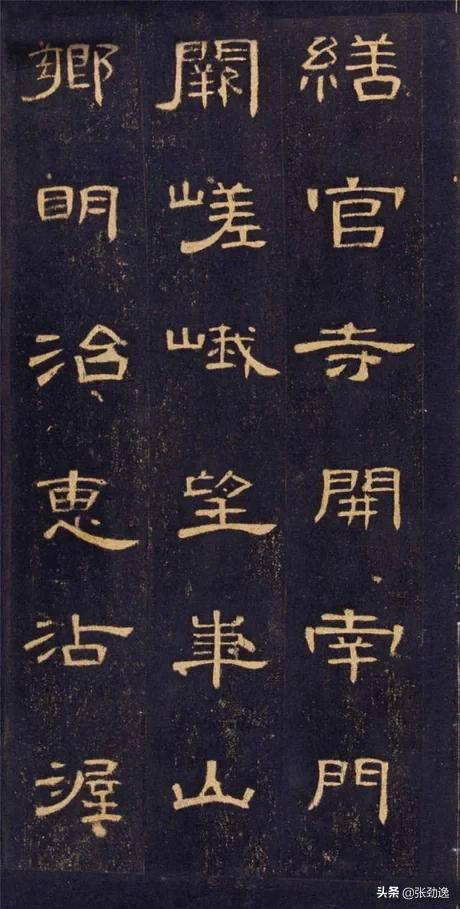 繕官寺開南門
闕嵯峨望華山
鄉明治惠沾渥
头条@张劲逸